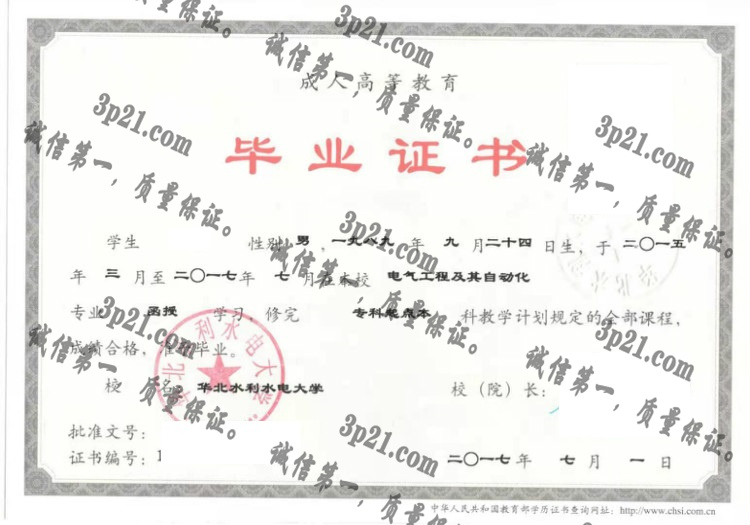 成人高等教育
毕业证书
学生 性别 男 ,一九八九 年 九 月二十四日生，于 二〇一五
年 三 月至 二〇一七年 七 月在本校 电气工程及其自动化
专业 函授 学习，修完 专科起点本 科教学计划规定的全部课程，
成绩合格，准予毕业。
校 名: 华北水利水电大学 校（院）长:
批准文号:
证书编号: 1
二〇一七年 七 月 一 日
中华人民共和国教育部学历证书查询网址: http://www.chsi.com.cn
3p21.com
诚信第一，质量保证。
3p21.com
诚信第一，质量保证。
3p21.com
诚信第一，质量保证。
3p21.com
诚信第一，质量保证。
3p21.com
诚信第一，质量保证。
3p21.com
诚信第一，质量保证。
3p21.com
诚信第一，质量保证。